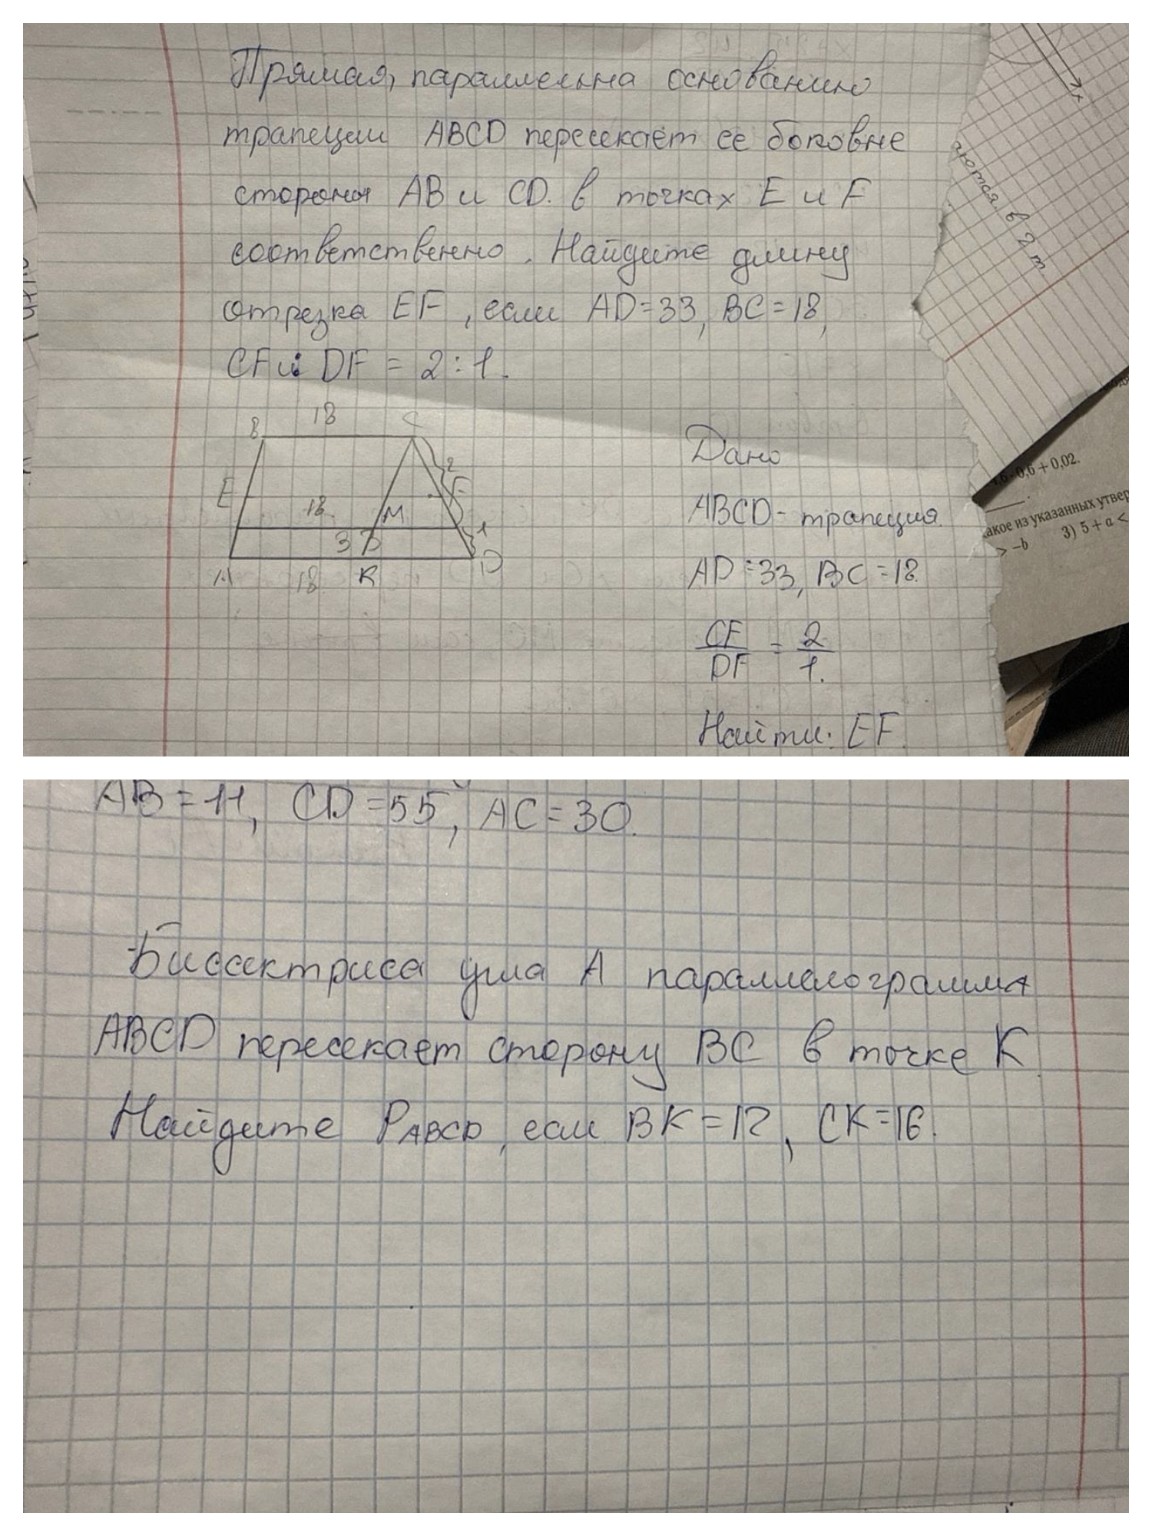 Прямая, параллельна основанию
трапеции ABCD пересекает ее боковне
стороны AB и CD. в точках E и F
соответственно. Найдите длину
отрезка EF, если AD=33, BC=18,
CF и DF = 2:1.
ются в 2 т
x
18
B
C
2
E
F
18
M
1
3
A
18
K
D
Дано
ABCD - трапеция.
AD=33, BC=18.
CF/DF = 2/1.
Найти: EF.
0,6+0,02.
акое из указанных утвер
> -b 3) 5 + a <
AB=11, CD=55, AC=30.
Биссектриса угла A параллелограмма
ABCD пересекает сторону BC в точке K.
Найдите PABCD, если BK=12, CK=16.